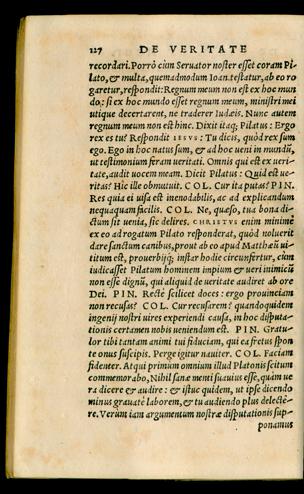 127 DE VERITATE
recordari. Porrò cùm Seruator noster esset coram Pi
lato, & multa, quemadmodum Ioan. testatur, ab eo ro
garetur, respondit: Regnum meum non est ex hoc mun
do,: si ex hoc mundo esset regnum meum, ministri mei
utique decertarent, ne traderer Iudæis. Nunc autem
regnum meum non est hinc. Dixit itaq; Pilatus: Ergo
rex es tu? Respondit IESVS: Tu dicis, quòd rex sum
ego. Ego in hoc natus sum, & ad hoc ueni in mundū,
ut testimonium feram ueritati. Omnis qui est ex ueri-
tate, audit uocem meam. Dicit Pilatus: Quid est ue-
ritas? Hic ille obmutuit. COL. Cur ita putas? PIN.
Res quia ei uisa est inenodabilis, ac ad explicandum
nequaquam facilis. COL. Ne, quæso, tua bona di-
ctum sit uenia, sic delires. CHRISTVS enim minimè
ex eo ad rogatum Pilato responderat, quòd noluerit
dare sanctum canibus, prout ab eo apud Matthæū di
titum est, prouerbijq; instar hodie circunfertur, cùm
iudicasset Pilatum hominem impium & ueri inimicū
non esse dignū, qui aliquid de ueritate audiret ab ore
Dei. PIN. Rectè scilicet doces: ergo prouinciam
non recusas? COL. Cur recusarem? quandoquidem
ingenij nostri uires experiendi causa, in hoc disputa-
tionis certamen nobis ueniendum est. PIN. Gratu-
lor tibi tantam animi tui fiduciam, qui ea fretus spon
te onus suscipis. Perge igitur nauiter. COL. Faciam
fidenter. Atqui primum omnium illud Platonis scitum
commemorabo, Nihil sanæ menti suauius esse, quàm ue
ra dicere & audire: & istuc quidem, ut ipse dicendo
minus grauatè laborem, & tu audiendo plus delectē-
re. Verùm iam argumentum nostræ disputationis sup-
ponamus